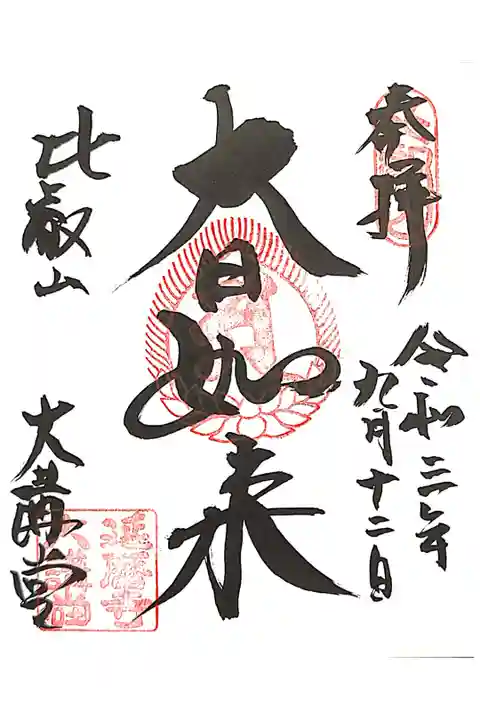 奉拝
令和三年
九月十二日
大日如来
比叡山
大講堂
延暦寺
大講堂印